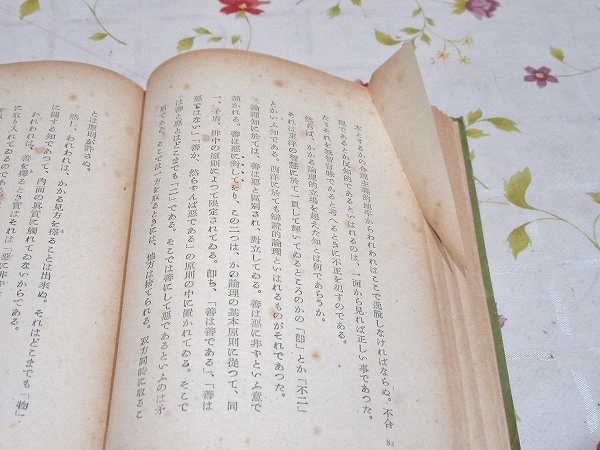 本とするかの合理主義的地平からわれわれはここで逸脱しなければならぬ。不合
理であるとか反知的であるといはれるのは、一面から見れば正しい事であつた。
だがそれを無智盲昧であると考へるときに不正を犯すのである。
然らば、かかる論理的立場を超えた知とは何であらうか。
それは東洋の智慧に於て一貫して輝いてゐるところのかの「卽」とか「不二」
とかいふ知である。西洋に於ても辯證的論理といはれるものがそれであつた。
論理知に於ては、善は惡と區別され、對立してゐる。善は惡に非ずといふ意で
頷かれる。善は惡に對してをり、この二つは かの論理の基本原則に從つて、同
一、矛盾、排中の原則によつて限定されてゐる。卽ち、「善は善である」、「善は
惡ではない」「善か、然らずんば惡である」の原則の中に置かれてゐる。そこで
は善と惡とはどこまでも「二」である。そこでは善にして惡であるといふのは矛
盾である。そこでは一方が取るときには、他方は捨てられる。双方同時に取るこ
とは原則が許さぬ。
然し、われわれは、かかる見方を擇ることは出來ぬ。それはどこまでも「物」
に關する知であつて、內面の眞實に觸れてゐないからである。
われわれは、善を擇るとき實はそれは「惡に非ず
に取り入れてゐるのである
83